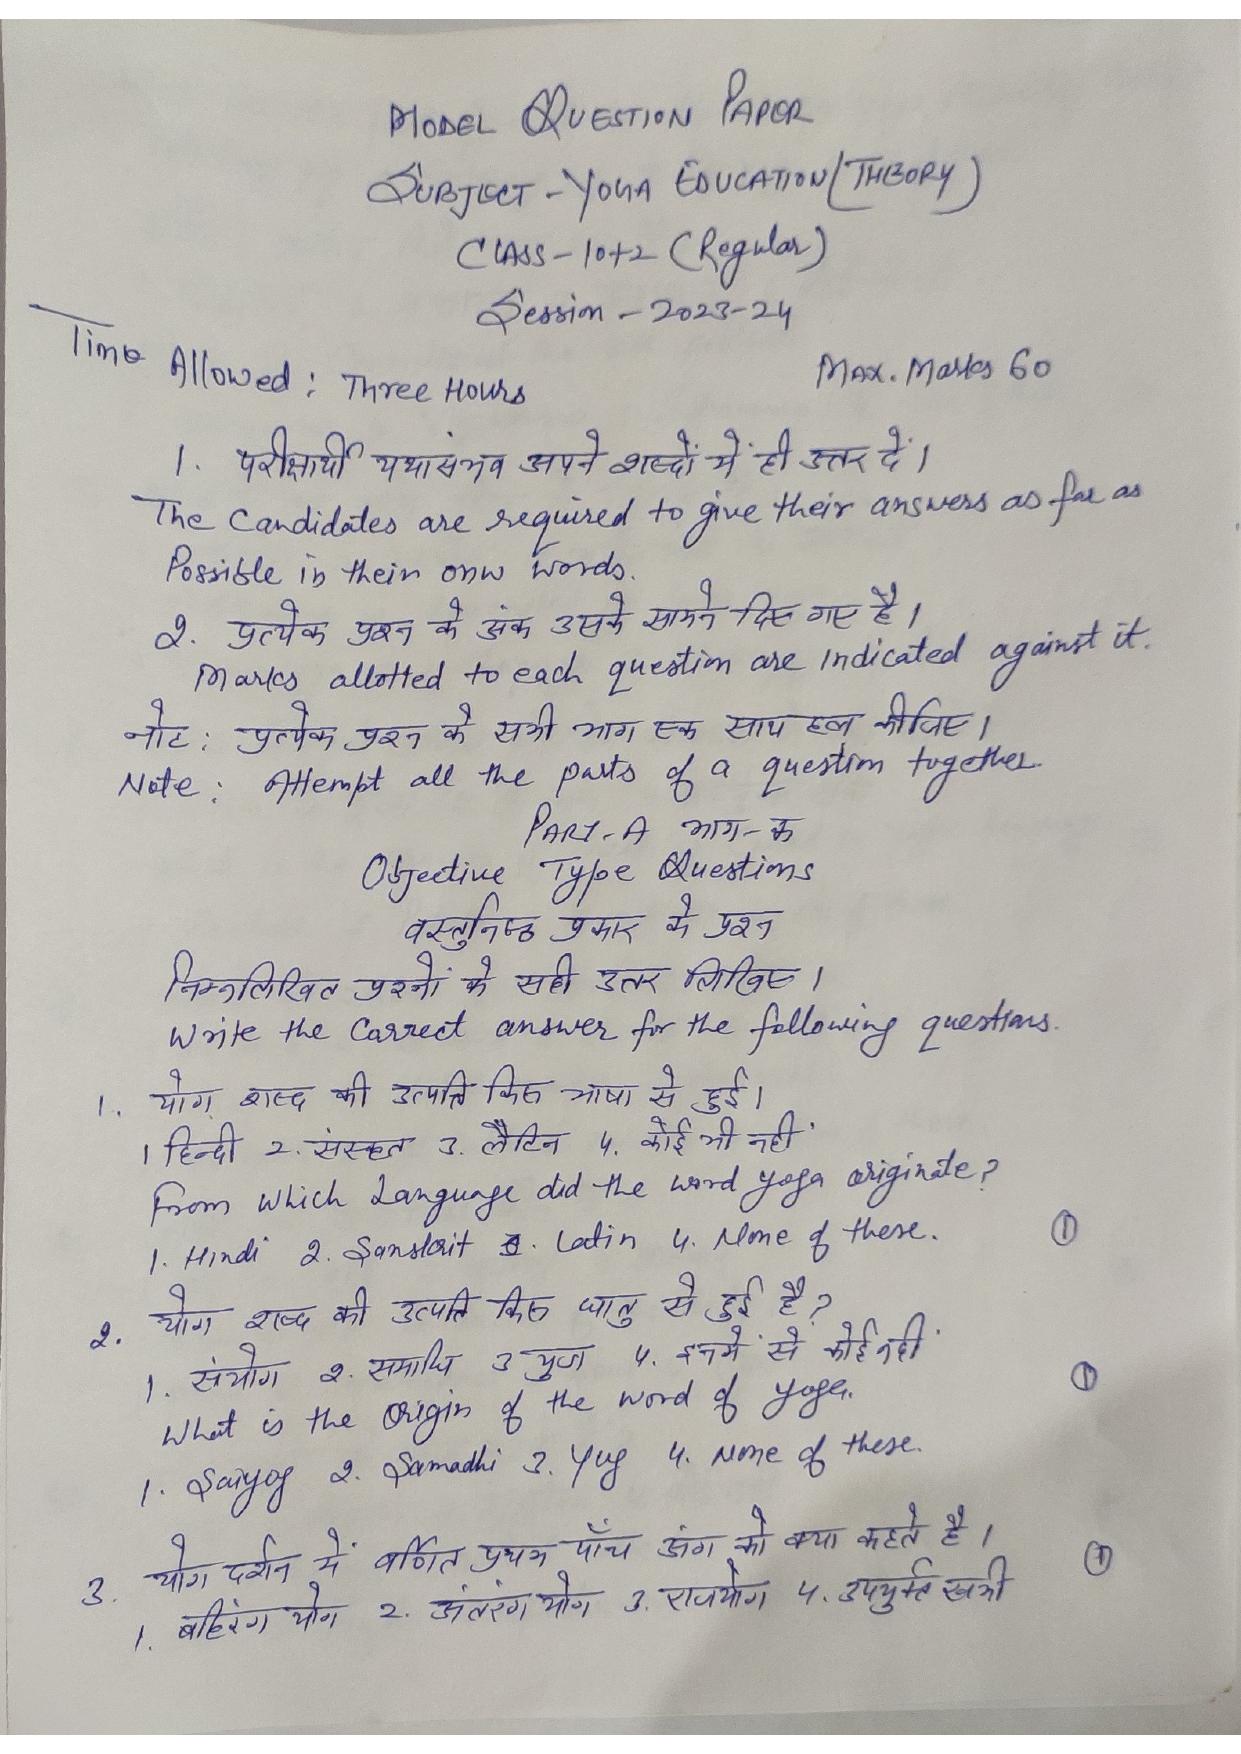 MODEL QUESTION PAPER
SUBJECT - YOGA EDUCATION (THEORY)
CLASS - 10+2 (Regular)
Session - 2023-24
Time Allowed : Three Hours Max. Marks 60
1. परीक्षार्थी यथासंभव अपने शब्दों में ही उत्तर दें।
The Candidates are required to give their answers as far as
Possible in their onw words.
2. प्रत्येक प्रश्न के अंक उसके सामने दिए गए है।
Marks allotted to each question are indicated against it.
नोट : प्रत्येक प्रश्न के सभी भाग एक साथ हल कीजिए।
Note : Attempt all the parts of a question together.
PART-A भाग-क
Objective Type Questions
वस्तुनिष्ठ प्रकार के प्रश्न
निम्नलिखित प्रश्नों के सही उत्तर लिखिए।
Write the Correct answer for the following questions.
1. योग शब्द की उत्पत्ति किस भाषा से हुई।
1 हिन्दी 2. संस्कृत 3. लैटिन 4. कोई भी नहीं
From which Language did the word yoga originate?
1. Hindi 2. Sanskrit 3. Latin 4. None of these. ①
2. योग शब्द की उत्पत्ति किस धातु से हुई है?
1. संयोग 2. समाधि 3 युज 4. इनमें से कोई नहीं
What is the Origin of the word of yoga. ①
1. Saiyog 2. Samadhi 3. Yug 4. None of these.
3. योग दर्शन में वर्णित प्रथम पाँच अंग को क्या कहते है। ①
1. बहिरंग योग 2. अंतरंग योग 3. राजयोग 4. उपयुक्त सभी